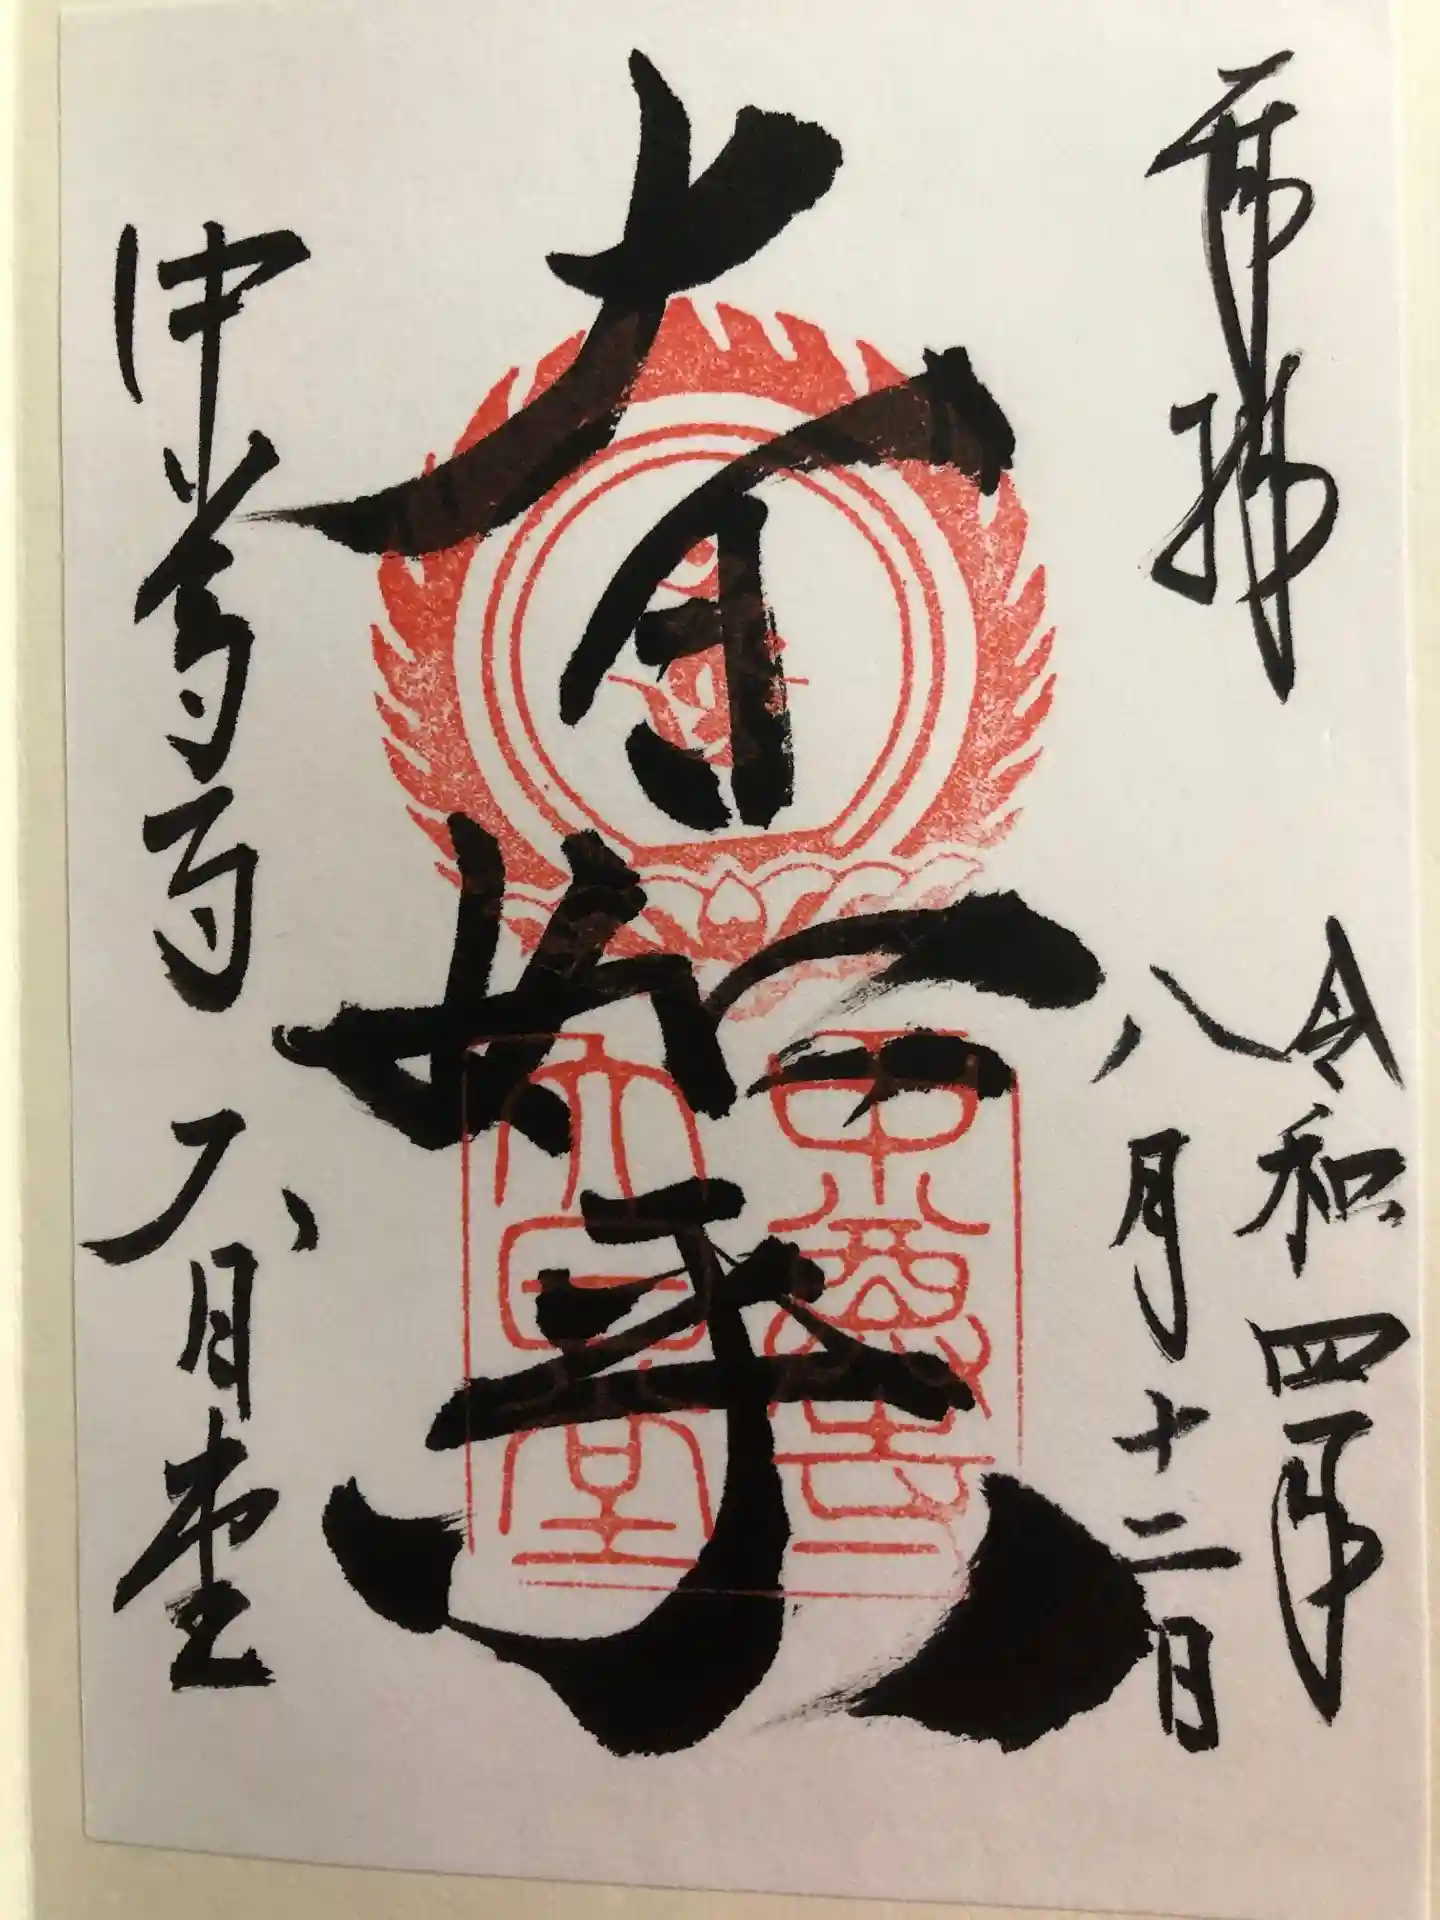 奉拝
令和四年
八月十二日
大日如来
中尊寺
大日堂
中尊寺
大日堂